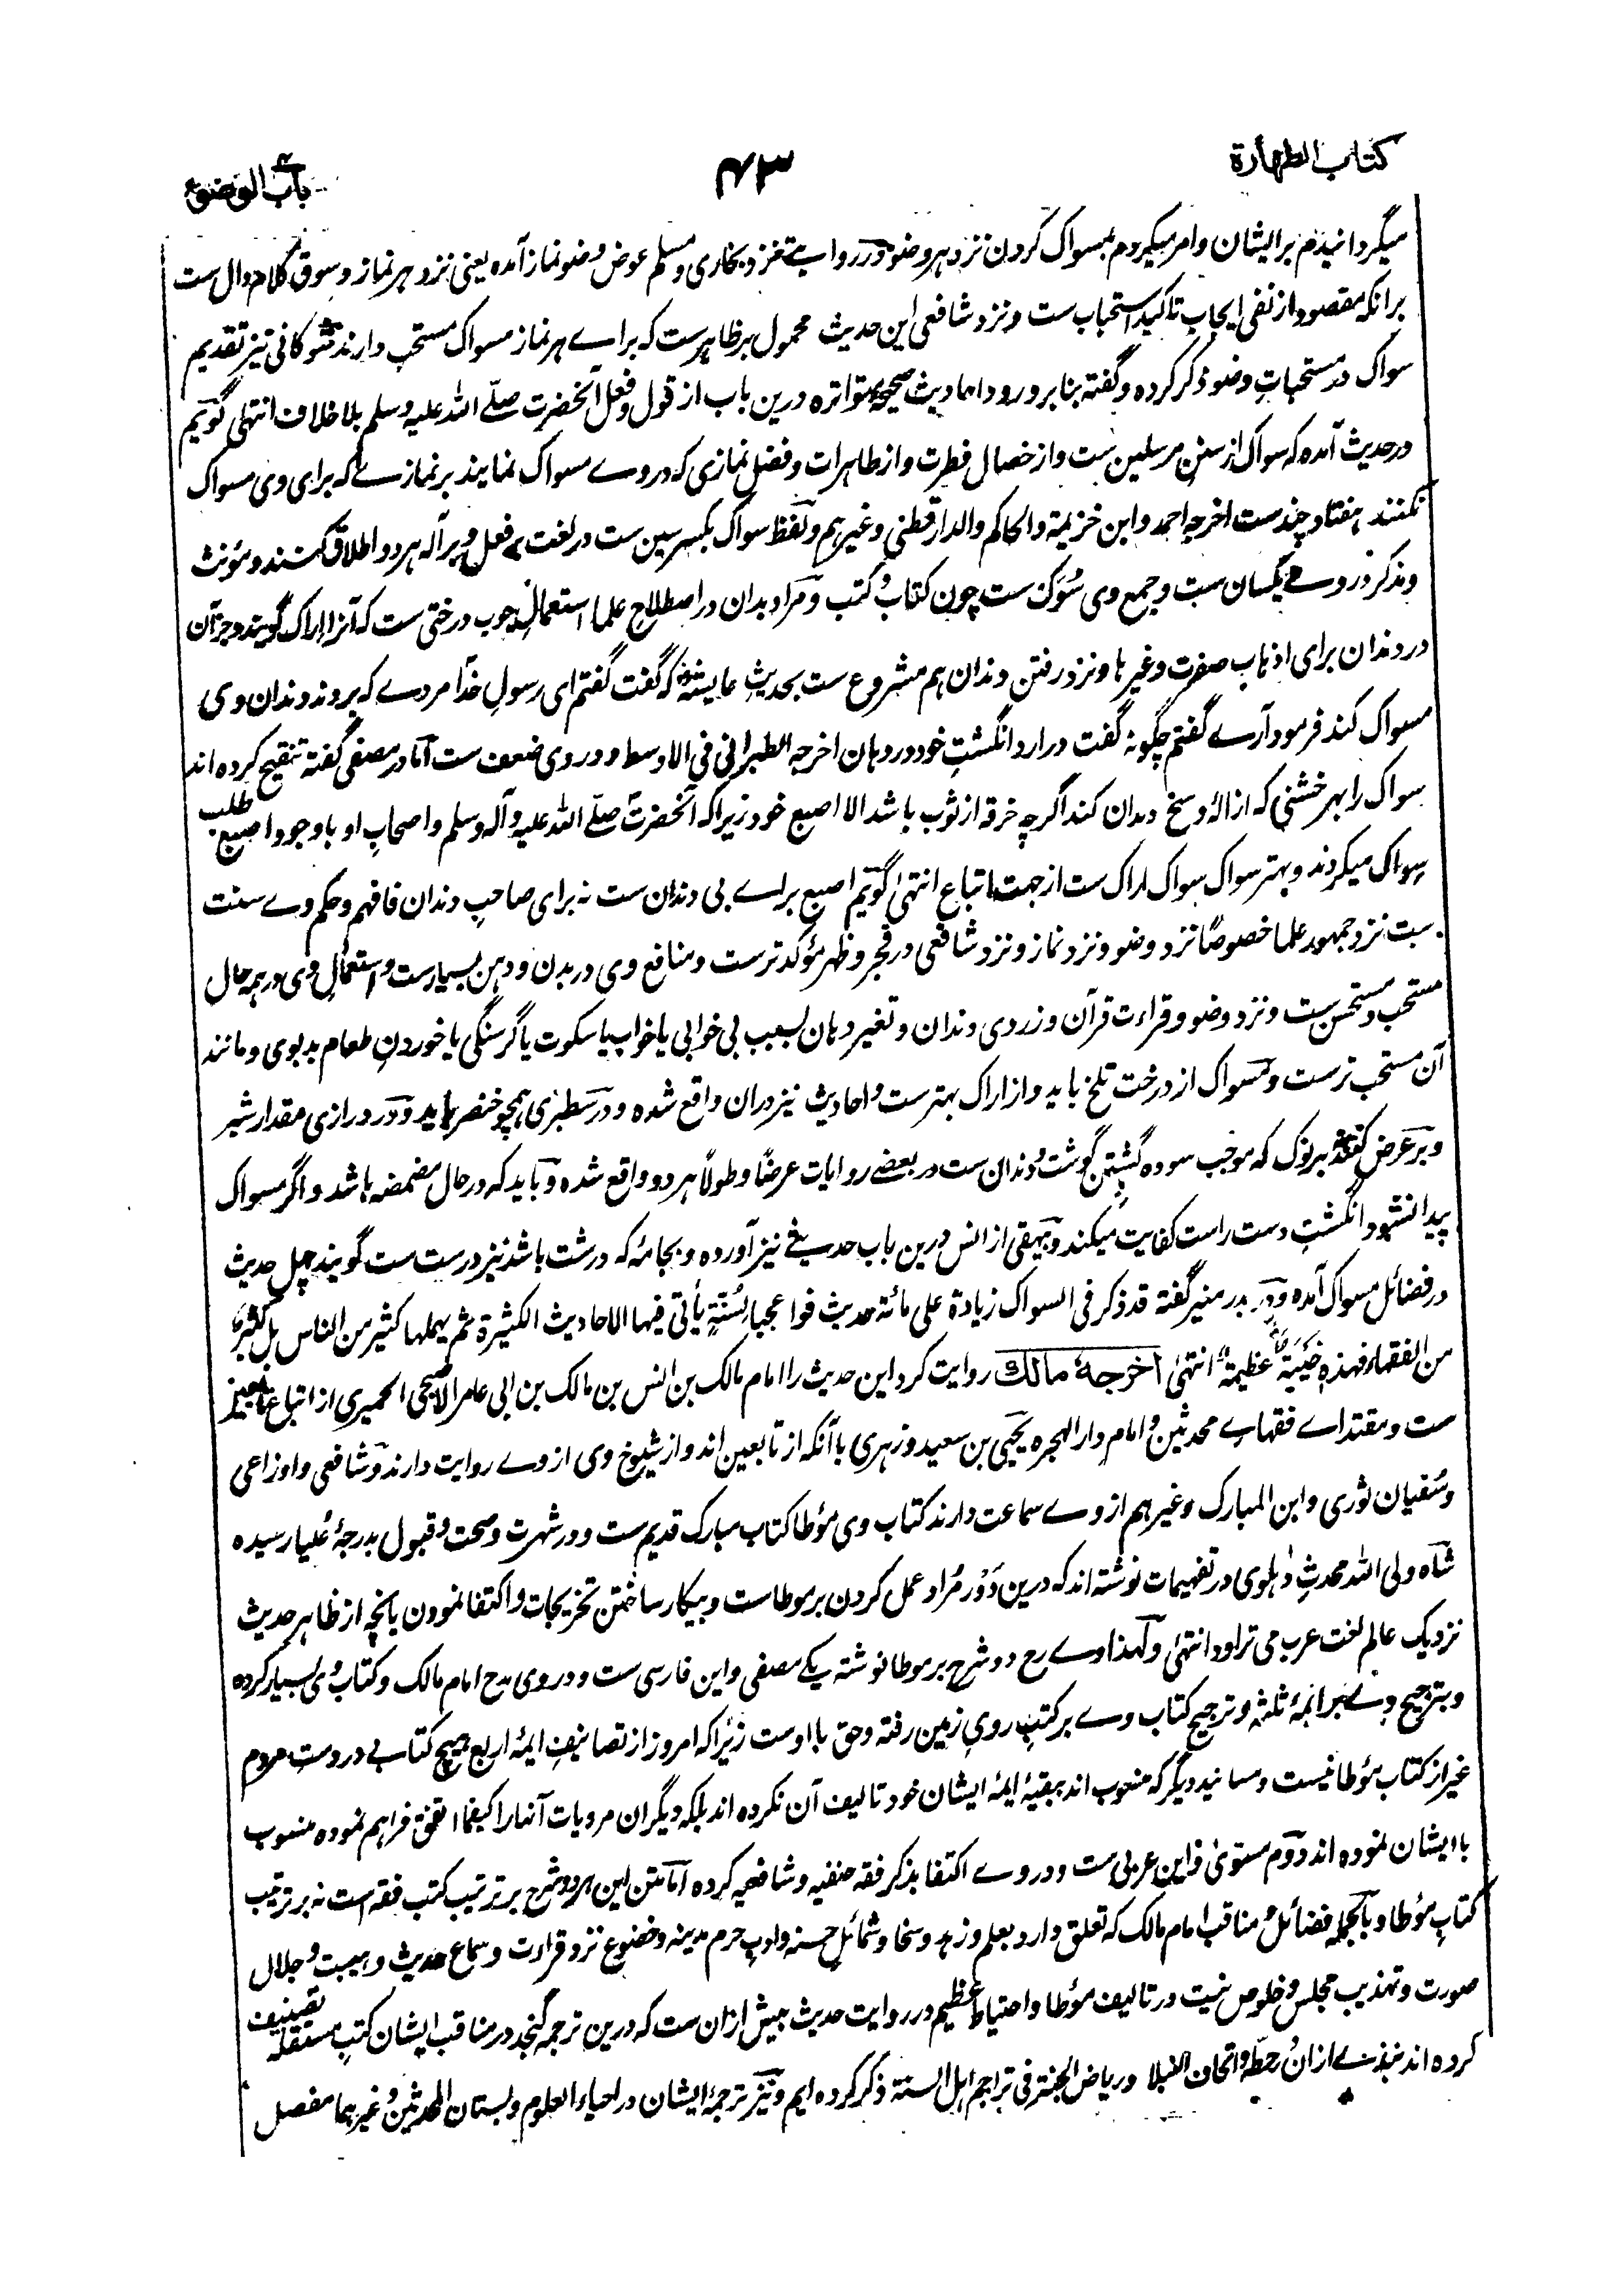 کتاب الطهارة
۴۳
باب الوضوء
میگردانیدم بر ایشان وامر میکردم بمسواک کردن نزد هر وضو و در روایتے نزد بخاری و مسلم عوض وضو نماز آمده یعنی نزد هر نماز و سوق کلام دال ست
برانکه مقصود از نفی ایجاب تاکید استحباب ست و نزد شافعی این حدیث محمول بر ظاهرست که براے هر نماز مسواک مستحب دارند شوکانی نیز تقدیم
سواک در مستحبات وضو ذکر کرده و گفته بنا بر ورود احادیث صحیحهٔ متواتره درین باب از قول و فعل آنحضرت صلّے الله علیه وسلم بلا خلاف انتهی گویم
در حدیث آمده که سواک از سنن مرسلین ست و از خصال فطرت و از طهارات و فضل نمازی که در وے مسواک نمایند بر نمازے که برای وی مسواک
نکنند هفتاد چندست اخرجه احمد وابن خزیمة والحاکم والدارقطنی وغیرهم و لفظ سواک بکسر سین ست در لغت بر فعل و بر آله هر دو اطلاق کنند و مؤنث
و مذکر در وے یکسان ست و جمع وی سُوُک ست چون کتاب و کتب و مراد بدان در اصطلاح علما استعمال چوب درختی ست که آنرا اراک گویند و جز آن
در دندان برای اذهاب صفرت وغیرها و نزد رفتن دندان هم مشروع ست بحدیث عایشه که گفت گفتم ای رسول خدا مردے که بروند دندان وی
مسواک کند فرمود آرے گفتم چگونه گفت درآرد انگشت خود در دهان اخرجه الطبرانی فی الاوسط و در وی ضعف ست اما در مصفی گفته تنقیح کرده اند
سواک را بهر خشنی که ازالهٔ وسخ دندان کند اگرچه خرقه از ثوب باشد الا اصبع خود زیرا که آنحضرت صلّے الله علیه وآله وسلم واصحاب او با وجود اصبع طلب
سواک میکردند و بهتر سواک سواک اراک ست از جهت اتباع انتهی گویم اصبع براے بی دندان ست نه برای صاحب دندان فافهم و حکم وے سنت
ست نزد جمهور علما خصوصًا نزد وضو و نزد نماز و نزد شافعی در فجر و ظهر مؤکدترست و منافع وی در بدن و دهن بسیارست و استعمال وی در همه حال
مستحب و مستحسن ست و نزد وضو و قراءت قرآن و زردی دندان و تغیر دهان بسبب بی خوابی یا خواب یا سکوت یا گرسنگی یا خوردن طعام بدبوی و مانند
آن مستحب ترست و مسواک از درخت تلخ باید و از اراک بهترست و احادیث نیز دران واقع شده و در سطبری همچو خنصر باید و در درازی مقدار شبر
و بر عرض کنند بر نوک که موجب سوده گشتن گوشت دندان ست در بعضے روایات عرضًا و طولًا هر دو واقع شده و باید که در حال مضمضه باشد و اگر مسواک
پیدا نشود انگشت دست راست کفایت میکند و بیهقی از انس درین باب حدیثے نیز آورده و بجامهٔ که درشت باشد نیز درست ست گویند چهل حدیث
در فضائل مسواک آمده و در بدر منیر گفته قد ذکر فی السواک زیادة علی مائة حدیث فواعجبا لسُنّة یأتی فیها الاحادیث الکثیرة ثم یهملها کثیر من الناس بل کثیر
من الفقهاء فهذه خیبة عظیمة انتهی اخرجه مالک روایت کرد این حدیث را امام مالک بن انس بن مالک بن ابی عامر الاصبحی الحمیری از اتباع تابعین
ست و مقتداے فقهاے محدثین و امام دار الهجره یحیی بن سعید و زهری با آنکه از تابعین اند و از شیوخ وی از وے روایت دارند و شافعی و اوزاعی
و سفیان ثوری و ابن المبارک وغیرهم از وے سماعت دارند کتاب وی مؤطا کتاب مبارک قدیم ست و در شهرت و صحت و قبول بدرجهٔ عُلیا رسیده
شاه ولی الله محدث دهلوی در تفهیمات نوشته اند که درین دَوْر مُراد عمل کردن بر موطاست و بیکار ساختن تخریجات و اکتفا نمودن بآنچه از ظاهر حدیث
نزدیک عالم لغت عرب می تراود انتهی و لهذا وے رح دو شرح بر موطا نوشته یکے مصفی و این فارسی ست و در وی مدح امام مالک و کتاب وی بسیار کرده
و بترجیح وے بر ائمهٔ ثلثه و ترجیح کتاب وے بر کتب روی زمین رفته و حق با اوست زیرا که امروز از تصانیف ایمهٔ اربع هیچ کتابے در دست مردم
غیر از کتاب مؤطا نیست و مسانید دیگر که منسوب اند ببقیهٔ ایمه ایشان خود تالیف آن نکرده اند بلکه دیگران مرویات آنها را کیفما اتفق فراهم نموده منسوب
با ایشان نموده اند دوم مستوی و این عربی ست و در وے اکتفا بذکر فقه حنفیه و شافعیه کرده اما متن این هر دو شرح بر ترتیب کتب فقه است نه بر ترتیب
کتاب مؤطا و بالجمله فضائل و مناقب امام مالک که تعلق دارد بعلم و زهد و سخا و شمائل حسنه و ادب حرم مدینه و خضوع نزد قراءت و سماع حدیث و هیبت و جلال
صورت و تهذیب مجلس و خلوص نیت در تالیف مؤطا و احتیاط عظیم در روایت حدیث بیش ازان ست که درین ترجمه گنجد در مناقب ایشان کتب مستقله تصنیف
کرده اند نبذے ازان در حطه و اتحاف النبلا و ریاض الجنة فی تراجم اهل السنة ذکر کرده ایم و نیز ترجمهٔ ایشان در احیاء العلوم و بستان المحدثین وغیرهما مفصل